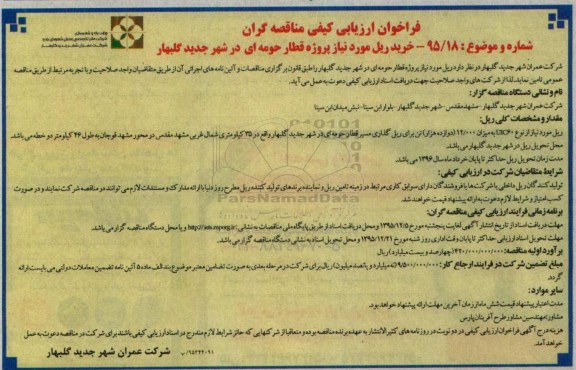 فراخوان ارزیابی کیفی مناقصه گران
شماره و موضوع : ۹۵/۱۸ – خرید ریل مورد نیاز پروژه قطار حومه ای در شهر جدید گلبهار
شرکت عمران شهر جدید گلبهار در نظر دارد ریل مورد نیاز پروژه قطار حومه ای در شهر جدید گلبهار را طبق قانون برگزاری مناقصات و آئین نامه های اجرائی آن از طریق متقاضیان واجد صلاحیت و با تجربه مرتبط از طریق مناقصه
عمومی تامین نماید. لذا از شرکت های واجد صلاحیت جهت دریافت اسناد ارزیابی کیفی دعوت به عمل می آید.
نام و نشانی دستگاه مناقصه گزار:
شرکت عمران شهر جدید گلبهار -مشهد مقدس -شهر جدید گلبهار -بلوار ابن سینا -نبش میدان ابن سینا
مقدار و مشخصات کلی ریل:
ریل مورد نیاز از نوع UIC۶۰ به میزان ۱۲/۰۰۰ (دوازده هزار) تن برای ریل گذاری مسیر قطار حومه ای در شهر جدید گلبهار واقع در ۳۵ کیلومتری شمال غربی مشهد مقدس در محور مشهد قوچان به طول ۴۶ کیلومتر دو خطه می باشد.
محل تحویل ریل در شهر جدید گلبهار می باشد.
مدت زمان تحویل ریل حداکثر تا پایان خرداد ماه سال ۱۳۹۶ می باشد.
شرایط متقاضیان شرکت در ارزیابی کیفی:
تولید کنندگان ریل داخلی با شرکت ها یا فروشندگان دارای سوابق کاری مرتبط در زمینه تامین ریل و نماینده برندهای تولید کننده ریل مطرح روز دنیا با ارائه مدارک و مستندات لازم می توانند در مناقصه شرکت نمایند و در صورت
کسب امتیاز و شرایط لازم دعوت به ارائه پیشنهاد قیمت خواهند شد.
برنامه زمانی فرایند ارزیابی کیفی مناقصه گران:
مهلت دریافت اسناد از تاریخ انتشار آگهی لغایت پنجشنبه مورخ ۱۳۹۵/۱۲/۵ و محل دریافت اسناد از طریق پایگاه ملی مناقصات به نشانی http://iets.mporg.ir و یا محل دستگاه مناقصه گزار می باشد.
مهلت تحویل اسناد ارزیابی حداکثر تا پایان وقت اداری روز شنبه مورخ ۱۳۹۵/۱۲/۲۱ و محل تحویل اسناد به نشانی دستگاه مناقصه گزار می باشد.
برآورد اولیه مناقصه: ۴۲۰/۰۰۰/۰۰۰/۰۰۰ (چهارصد و بیست میلیارد) ریال
مبلغ تضمین شرکت در فرایند ارجاع کار: ۹/۵۰۰/۰۰۰/۰۰۰ (نه میلیارد و پانصد میلیون) ریال برای شرکت در مرحله بعدی به صورت تضامین معتبر موضوع بند الف ماده ۵ آئین نامه تضمین معاملات دولتی می بایست ارائه
گردد.
سایر موارد:
مدت اعتبار پیشنهاد قیمت شش ماه از زمان آخرین مهلت ارائه پیشنهاد خواهد بود.
مشاور: مهندسین مشاور طرح آفرینان پارس
هزینه درج آگهی فراخوان ارزیابی کیفی در دو نوبت در روزنامه های کثیر الانتشار به عهده برنده مناقصه بوده و متعاقبا از شرکتهایی که حائز شرایط لازم مندرج در اسناد ارزیابی کیفی باشند برای شرکت در مناقصه دعوت به عمل
خواهد آمد.
۹۵۲۴۴۰۹۱/ب شرکت عمران شهر جدید گلبهار
ParsNamadData